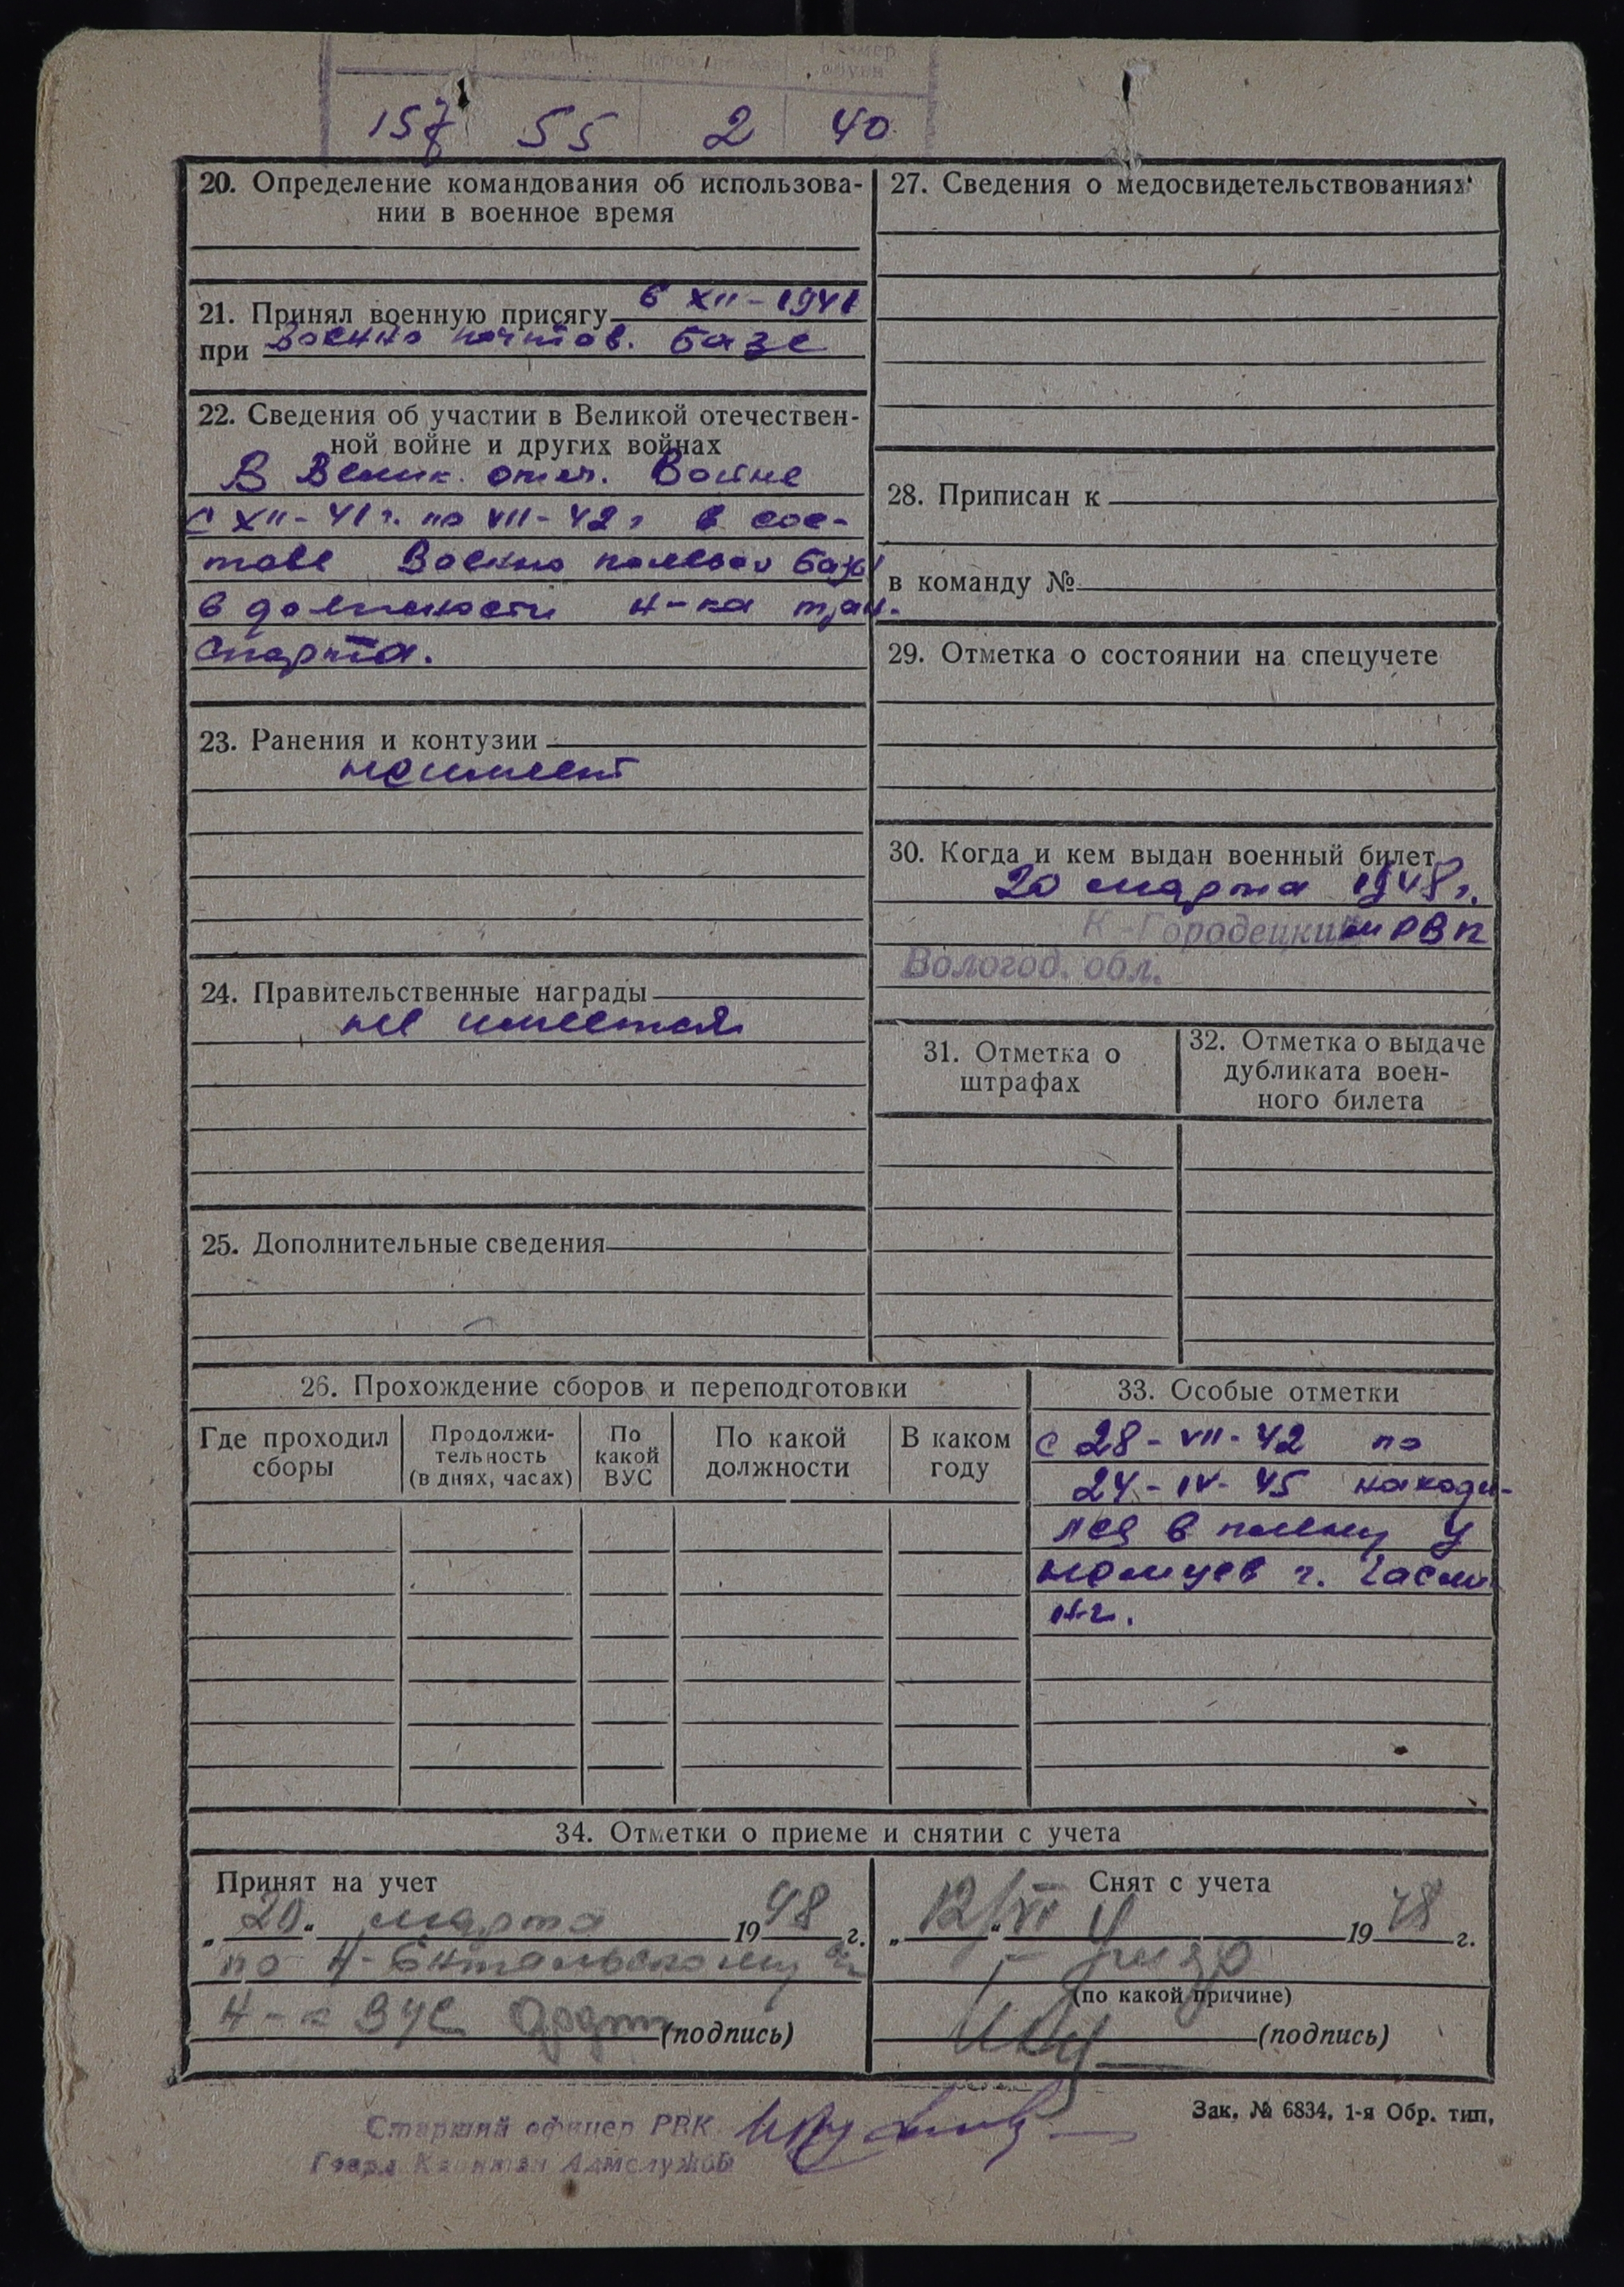 размер
обуви
157 55 2 40
20. Определение командования об использова-
нии в военное время
21. Принял военную присягу 6 XII - 1941
при Военно почтов. базе
22. Сведения об участии в Великой отечествен-
ной войне и других войнах
В Велик. отеч. Войне
с XII - 41 г. по VII - 42 г в сос-
таве Военно полевой базы
в должности н-ка тран-
спорта.
23. Ранения и контузии
не имеет
24. Правительственные награды
не имеется
25. Дополнительные сведения
26. Прохождение сборов и переподготовки
Где проходил
сборы
Продолжи-
тельность
(в днях, часах)
По
какой
ВУС
По какой
должности
В каком
году
27. Сведения о медосвидетельствованиях
28. Приписан к
в команду №
29. Отметка о состоянии на спецучете
30. Когда и кем выдан военный билет
20 марта 1948 г.
К-Городецким РВК
Вологод. обл.
31. Отметка о
штрафах
32. Отметка о выдаче
дубликата воен-
ного билета
33. Особые отметки
с 28 - VII - 42 по
24 - IV - 45 находи-
лся в плену у
немцев г.
34. Отметки о приеме и снятии с учета
Принят на учет
„20“ марта 1948 г.
по
Н-к ВУС (подпись)
Снят с учета
„12/VI 1948 г.
(по какой причине)
(подпись)
Старший офицер РВК
Гвард. Капитан Адмслужбы
Зак. № 6834, 1-я Обр. тип.